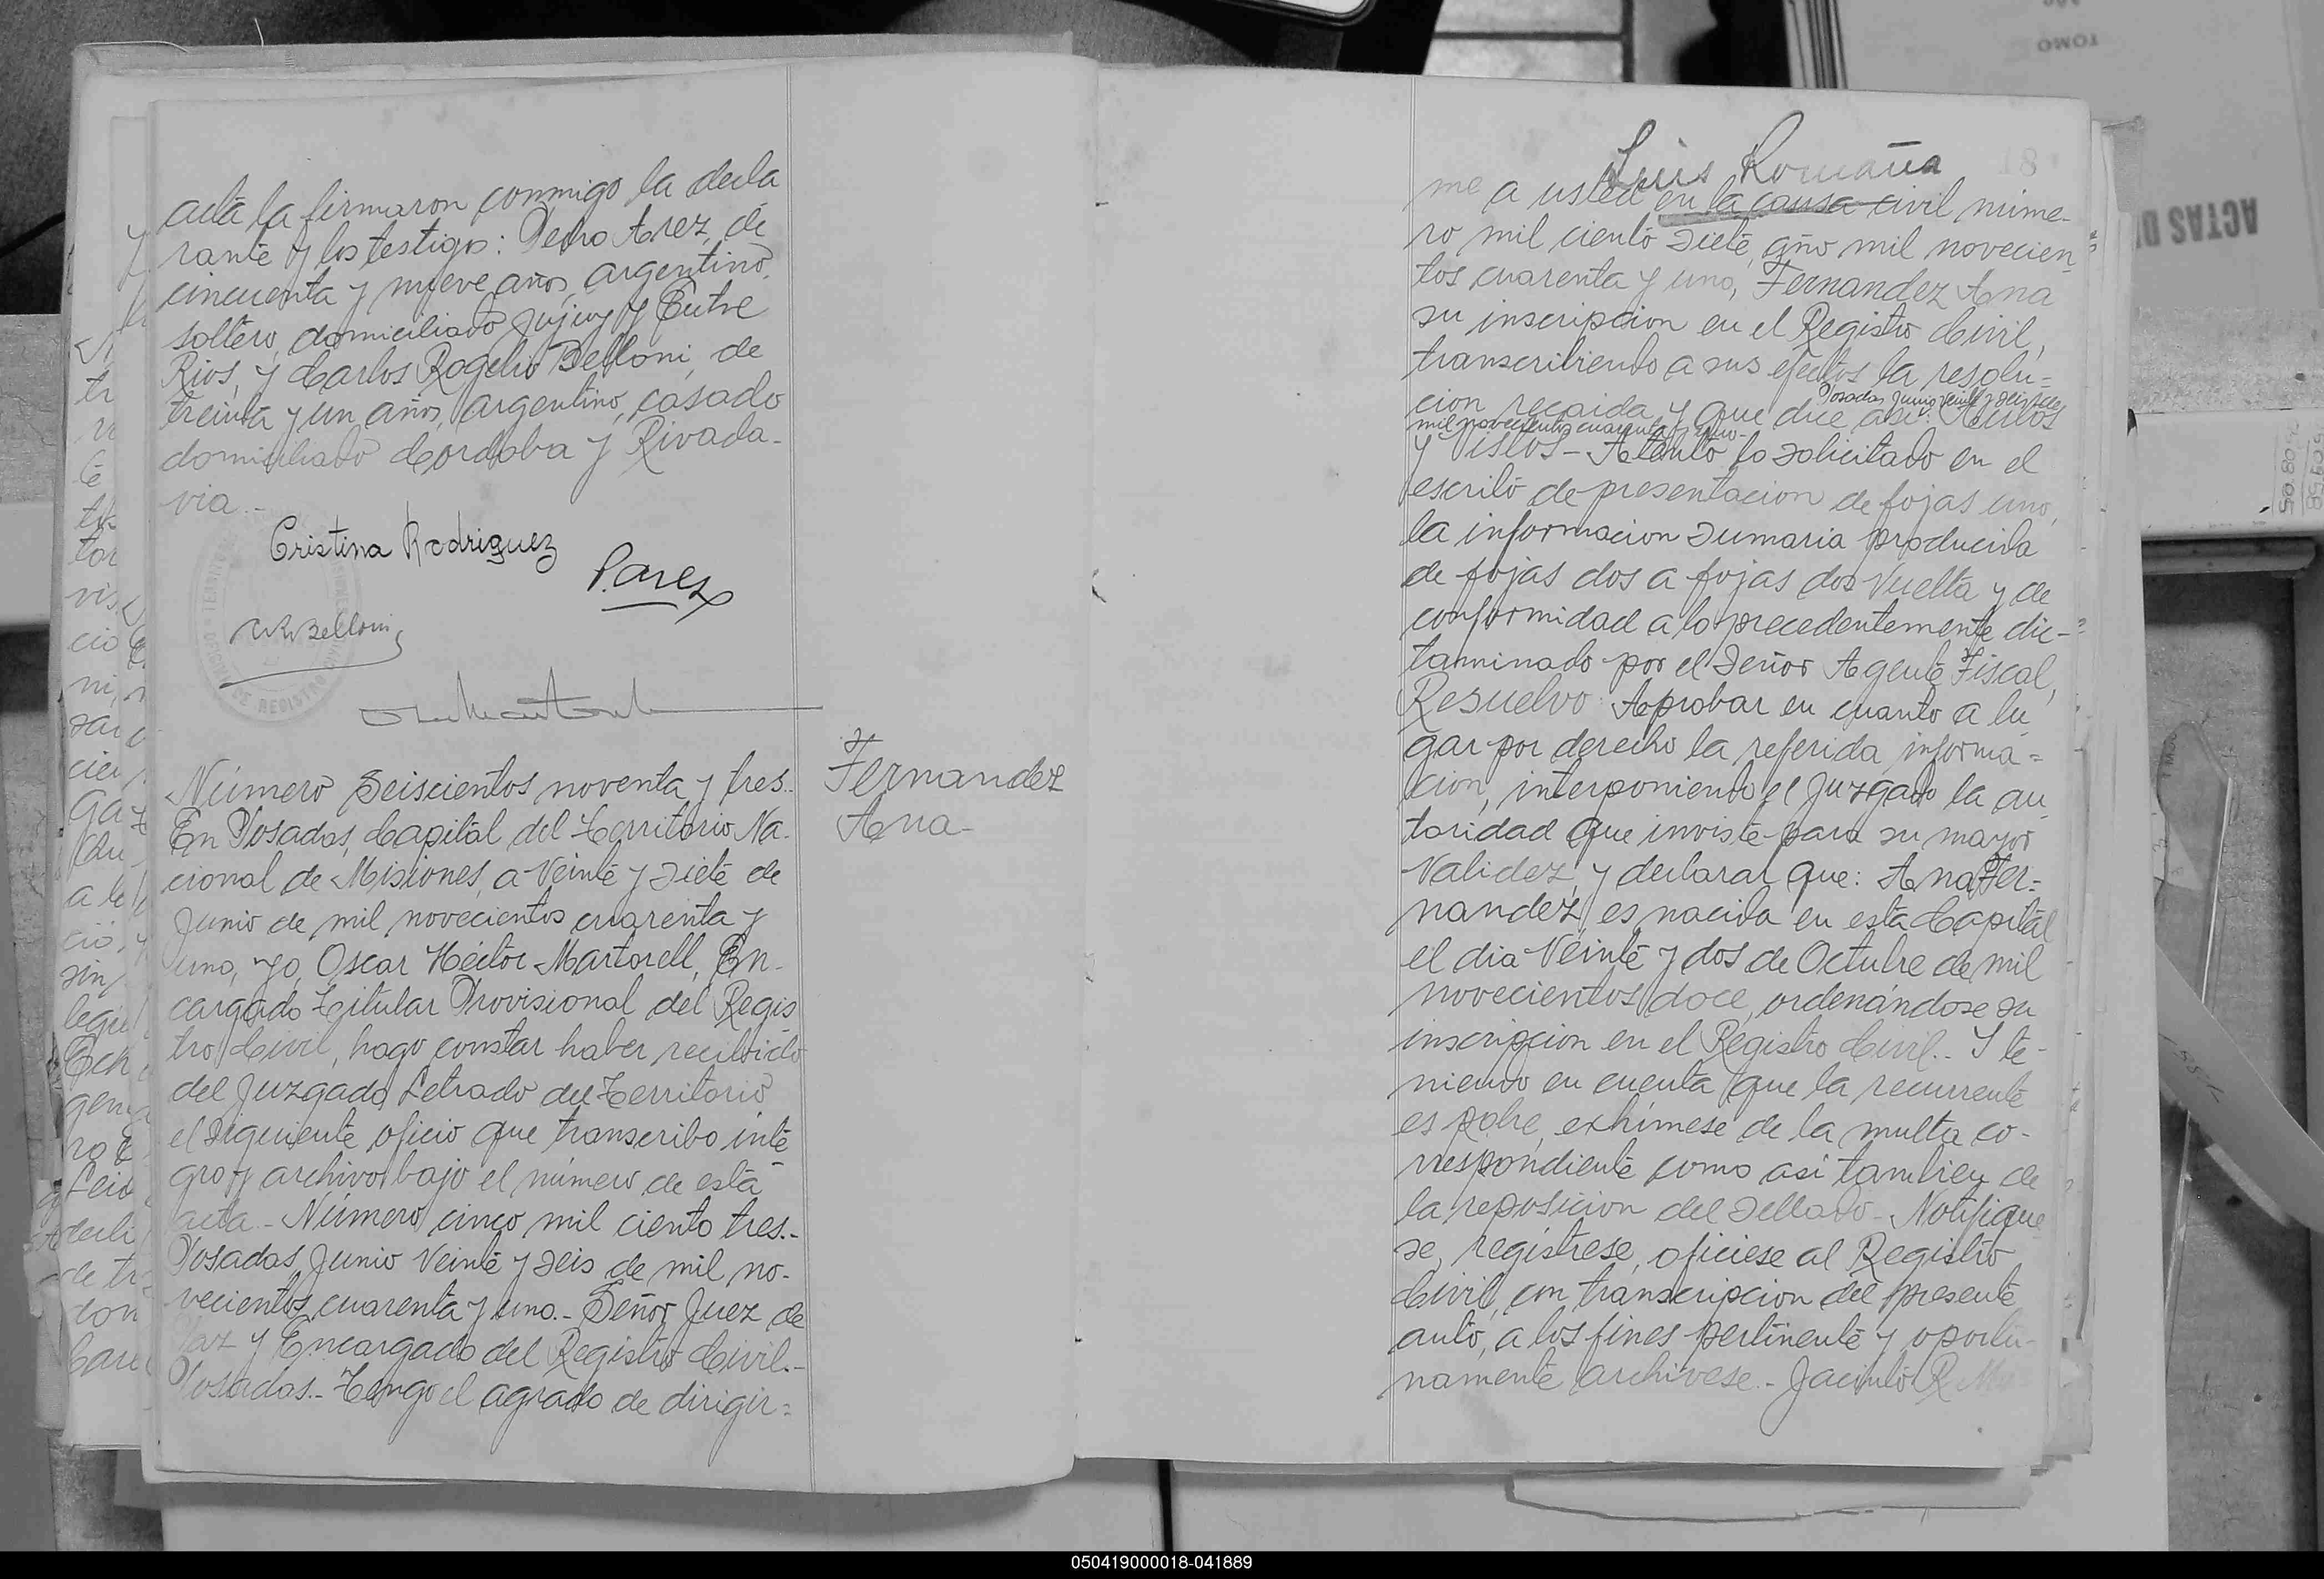 acta la firmaron conmigo la decla
rante y los testigos: Pedro Arez, de
cincuenta y nueve años, argentino,
soltero, domiciliado Jujuy y Entre
Rios, y Carlos Rogelio Belloni, de
treinta y un años, argentino, casado
domiciliado Cordoba y Rivada-
via.-
Cristina Rodriguez
P. Arez
C.R. Belloni
OFICINA DE REGISTRO CIVIL
Número Seiscientos noventa y tres.-
En Posadas, Capital del Territorio Na-
cional de Misiones, a Veinte y siete de
Junio de mil novecientos cuarenta y
uno, yo, Oscar Héctor Martorell, En-
cargado Titular Provisional del Regis
tro Civil, hago constar haber recibido
del Juzgado Letrado del Territorio
el siguiente oficio que transcribo inte
gro y archivo bajo el número de esta
acta.- Número cinco mil ciento tres.-
Posadas, Junio Veinte y seis de mil no-
vecientos cuarenta y uno.- Señor Juez de
Paz y Encargado del Registro Civil.-
Posadas.- Tengo el agrado de dirigir=
Fernandez
Ana-
18
Luis Romaña
me a usted en la causa civil núme-
ro mil ciento siete, año mil novecien
tos cuarenta y uno, Fernandez Ana
su inscripcion en el Registro Civil,
transcribiendo a sus efectos la resolu=
Posadas Junio veinte y seis de
cion recaida y que dice asi: Autos
mil novecientos cuarenta y uno-
y Vistos- Atento lo solicitado en el
escrito de presentacion de fojas uno,
la informacion sumaria producida
de fojas dos a fojas dos Vuelta y de
conformidad a lo precedentemente dic-
taminado por el Señor Agente Fiscal,
Resuelvo: Aprobar en cuanto a lu
gar por derecho la referida informa=
cion, interponiendo el Juzgado la au
toridad que inviste para su mayor
Validez, y declarar que: Ana Fer=
nandez, es nacida en esta Capital
el dia Veinte y dos de Octubre de mil
novecientos doce, ordenándose su
inscripcion en el Registro Civil.- Y te-
niendo en cuenta que la recurrente
es pobre, exhímese de la multa co-
rrespondiente como asi tambien de
la reposicion del sellado- Notifique
se, regístrese, ofíciese al Registro
Civil, con transcripcion del presente
auto, a los fines pertinente y oportu-
namente archivese.- Jacinto R
TOMO
ACTAS D
050419000018-041889